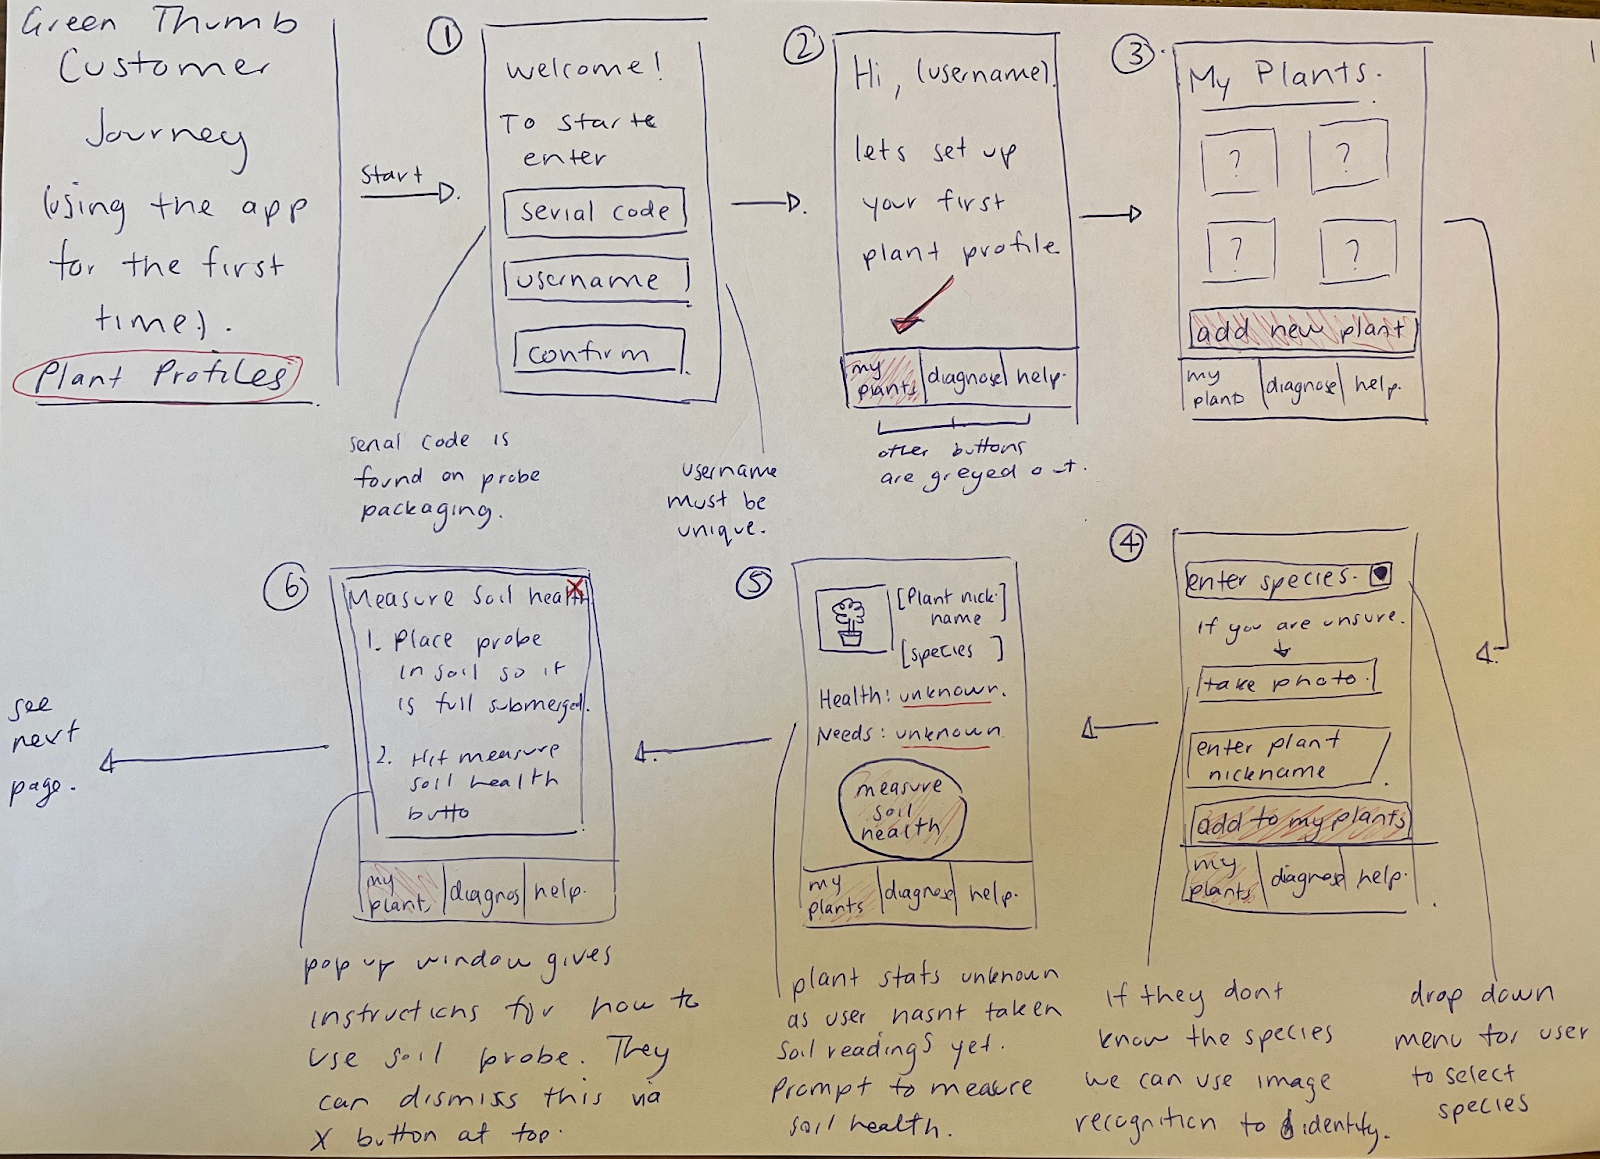 Green Thumb
Customer
Journey
(using the app
for the first
time).
Plant Profiles
1
Start
①
Welcome!
To starte
enter
serial code
username
confirm
serial code is
found on probe
packaging.
username
must be
unique.
②
Hi, (username).
lets set up
your first
plant profile
my
plants
diagnose
help.
other buttons
are greyed out.
③
My Plants.
? ?
? ?
add new plant
my
plants
diagnose
help.
④
enter species.
If you are unsure.
take photo.
enter plant
nickname
add to my plants
my
plants
diagnose
help.
if they dont
know the species
we can use image
recognition to identify.
drop down
menu for user
to select
species
⑤
[Plant nick
name]
[species ]
Health: unknown.
Needs: unknown
measure
soil
health
my
plants
diagnose
help.
plant stats unknown
as user hasnt taken
soil readings yet.
Prompt to measure
soil health.
⑥
Measure soil health
X
1. Place probe
in soil so it
is full submerged.
2. Hit measure
soil health
butto
my
plants
diagnos
help.
pop up window gives
instructions for how to
use soil probe. They
can dismiss this via
X button at top.
see
next
page.